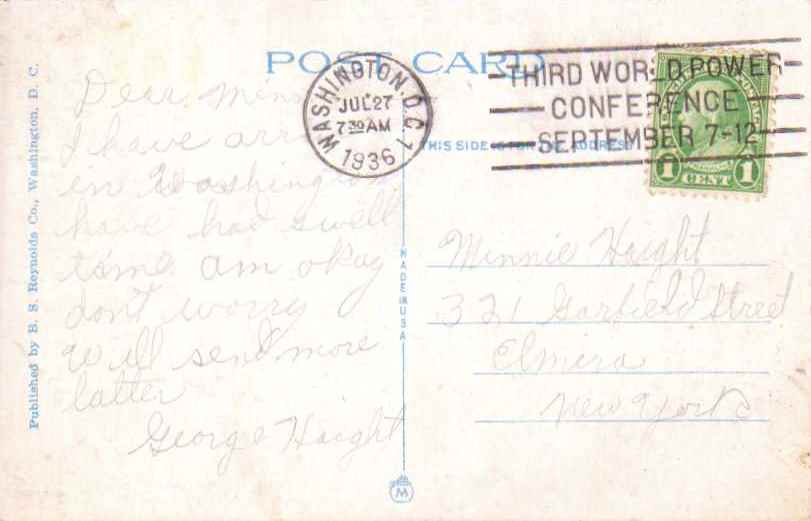 POST CARD
WASHINGTON, D.C. 1
JUL 27
7 30 AM
1936
THIRD WORLD POWER
CONFERENCE
SEPTEMBER 7-12
1 CENT 1
THIS SIDE IS FOR THE ADDRESS
Published by B. S. Reynolds Co., Washington, D. C.
MADE IN USA
M
Dear Minn
I have arr
in Washington
have had swell
time am okay
dont worry
will send more
latter
George Haight
Minnie Haight
321 Garfield Street
Elmira
New York